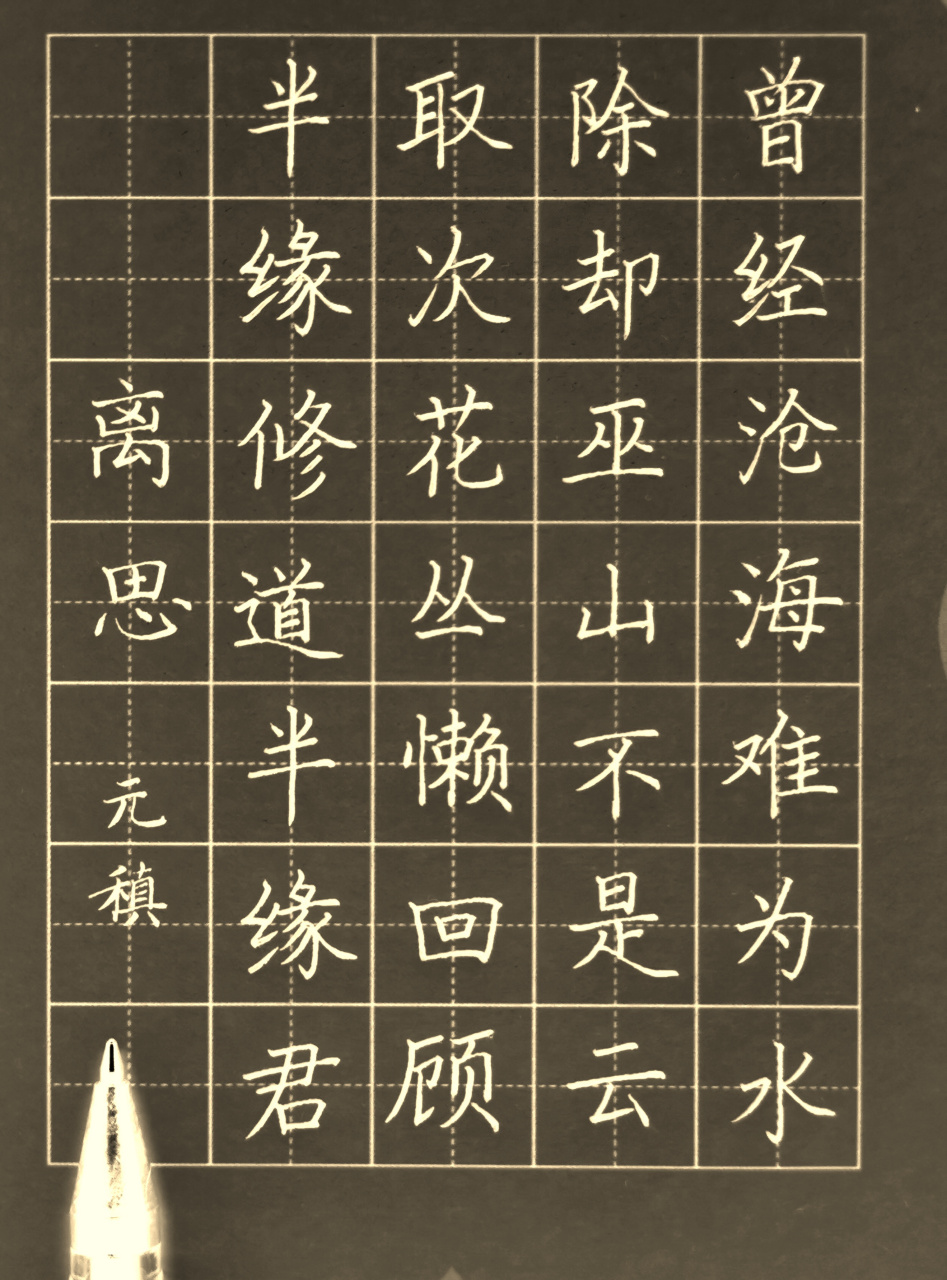 曾经沧海难为水
除却巫山不是云
取次花丛懒回顾
半缘修道半缘君
离思
元稹